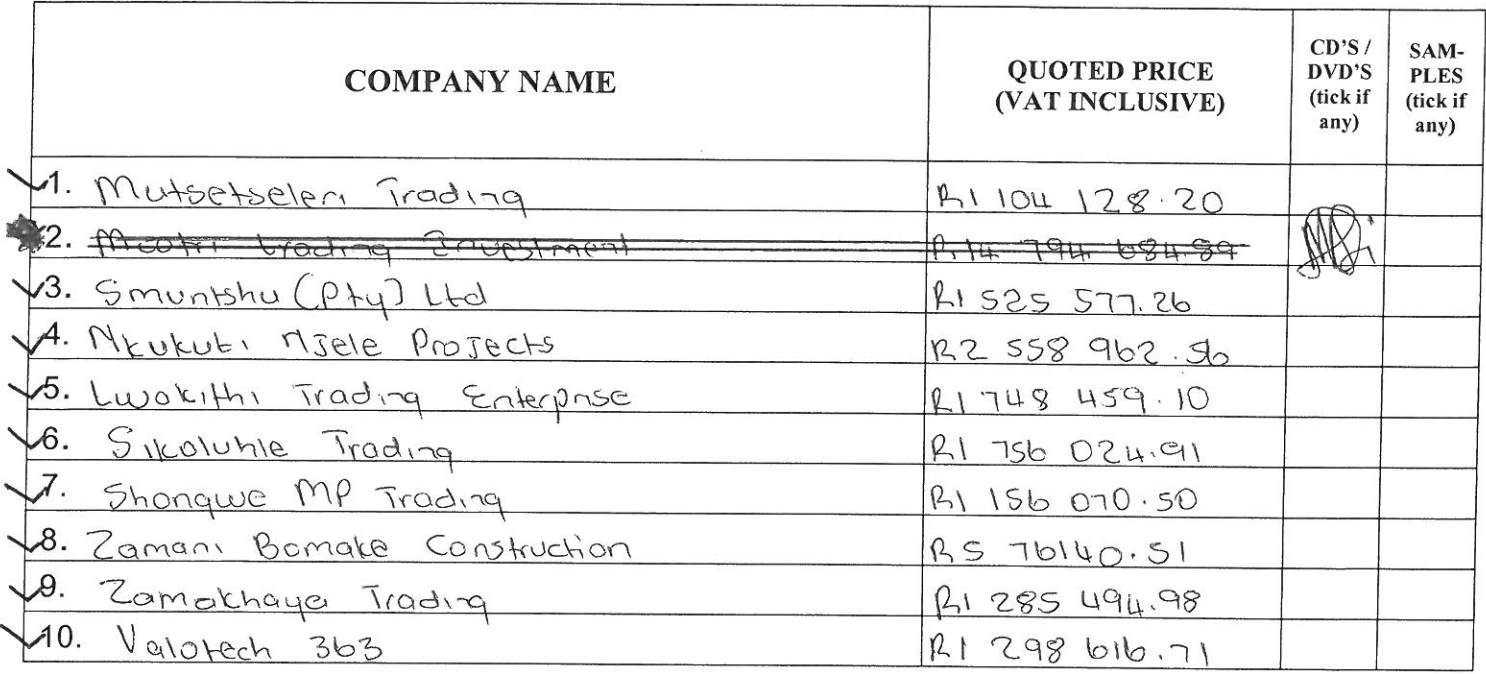 COMPANY NAME QUOTED PRICE (VAT INCLUSIVE) CD'S / DVD'S (tick if any) SAM-PLES (tick if any)
1. Mutsetseleni Trading R1 104 128.20
2. trading Investment R14 794 684.89
3. Smuntshu (Pty) Ltd R1 525 577.26
4. Nkukuti Njele Projects R2 558 962.56
5. Lwakithi Trading Enterprise R1 748 459.10
6. Sikoluhle Trading R1 756 024.91
7. Shongwe MP Trading R1 156 070.50
8. Zamani Bomake Construction R5 76140.51
9. Zamakhaya Trading R1 285 494.98
10. Valotech 363 R1 298 616.71